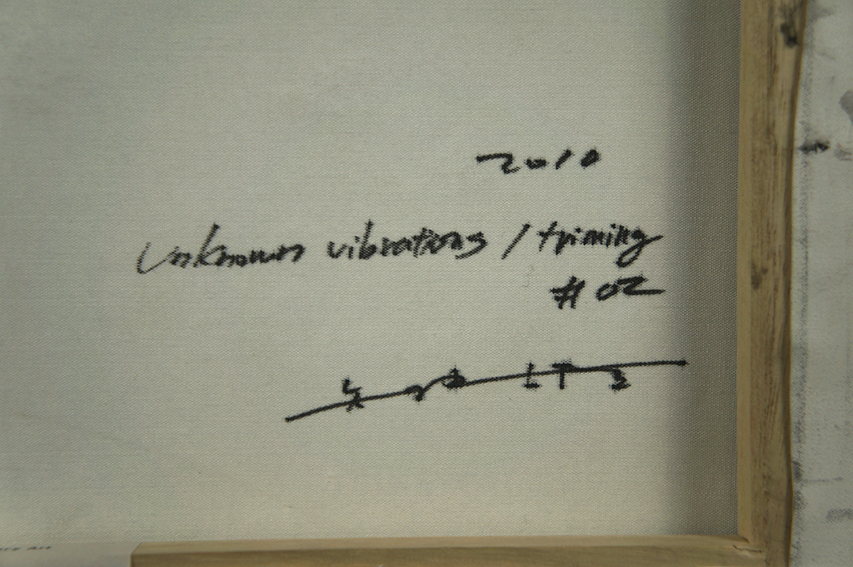 2010
Unknown vibrations / triming
#02